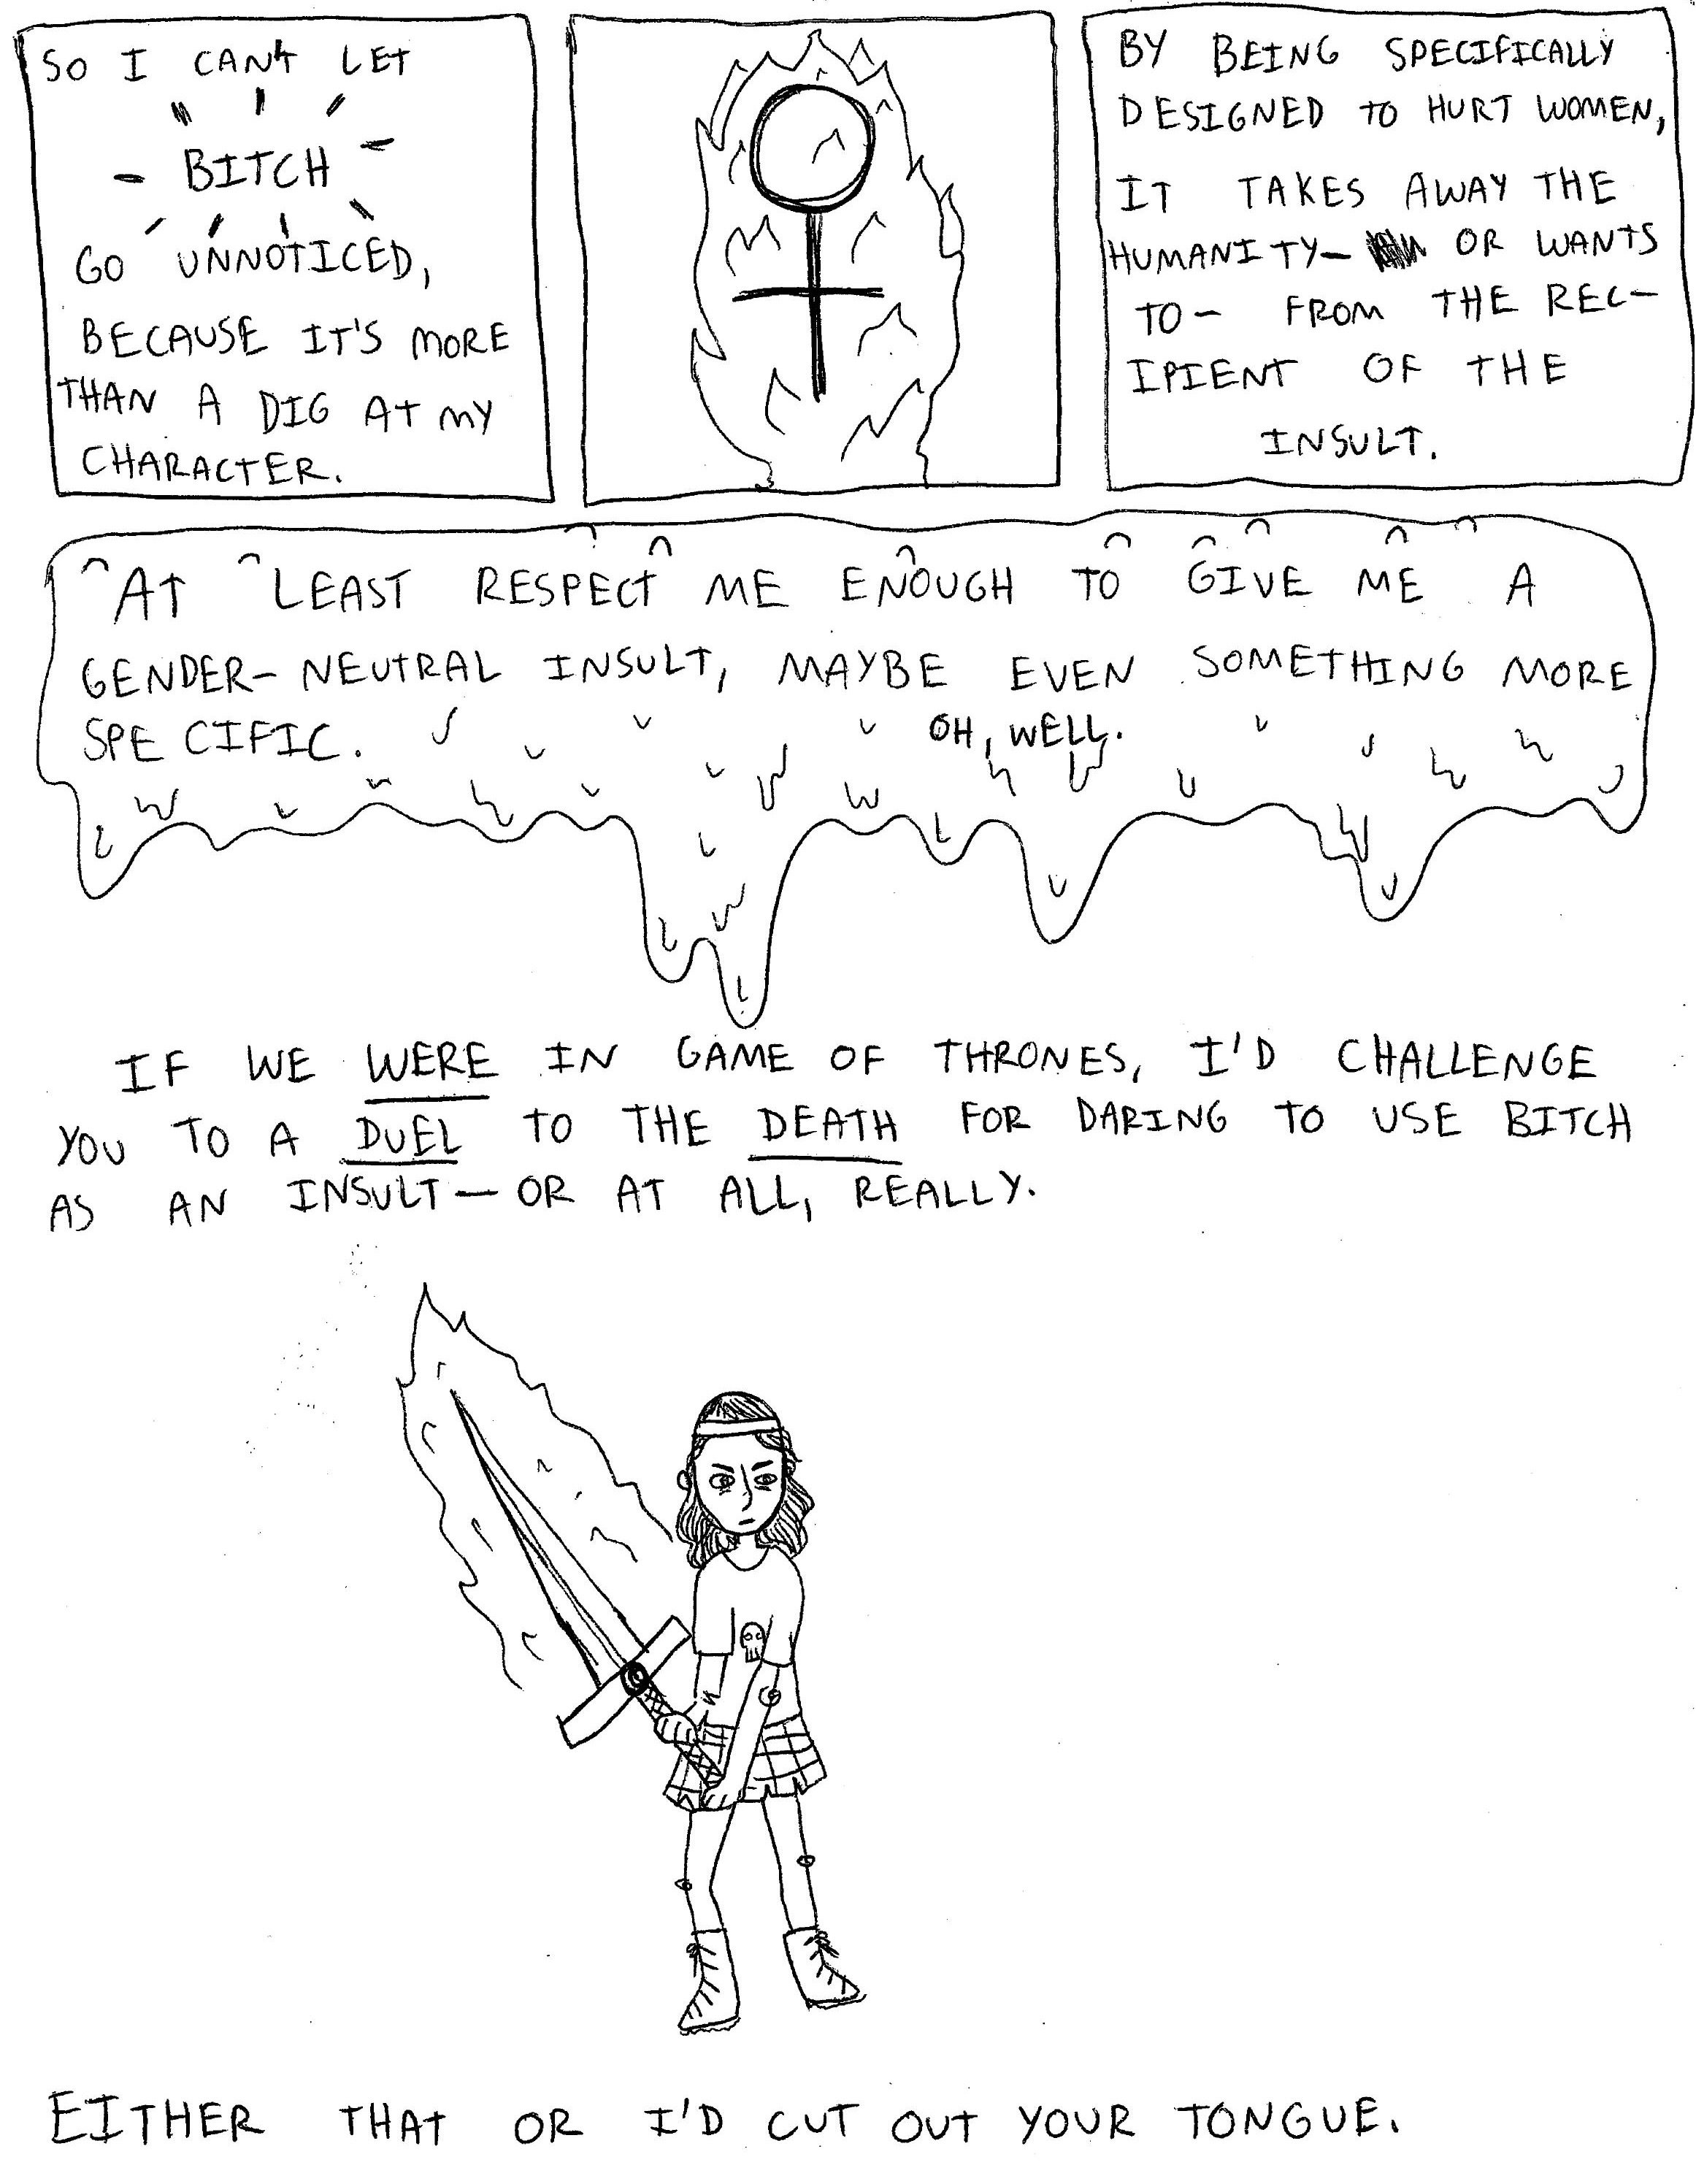 SO I CAN'T LET
BITCH
GO UNNOTICED,
BECAUSE IT'S MORE
THAN A DIG AT MY
CHARACTER.
BY BEING SPECIFICALLY
DESIGNED TO HURT WOMEN,
IT TAKES AWAY THE
HUMANITY— OR WANTS
TO— FROM THE REC-
IPIENT OF THE
INSULT.
AT LEAST RESPECT ME ENOUGH TO GIVE ME A
GENDER-NEUTRAL INSULT, MAYBE EVEN SOMETHING MORE
SPECIFIC. OH, WELL.
IF WE WERE IN GAME OF THRONES, I'D CHALLENGE
YOU TO A DUEL TO THE DEATH FOR DARING TO USE BITCH
AS AN INSULT— OR AT ALL, REALLY.
EITHER THAT OR I'D CUT OUT YOUR TONGUE.